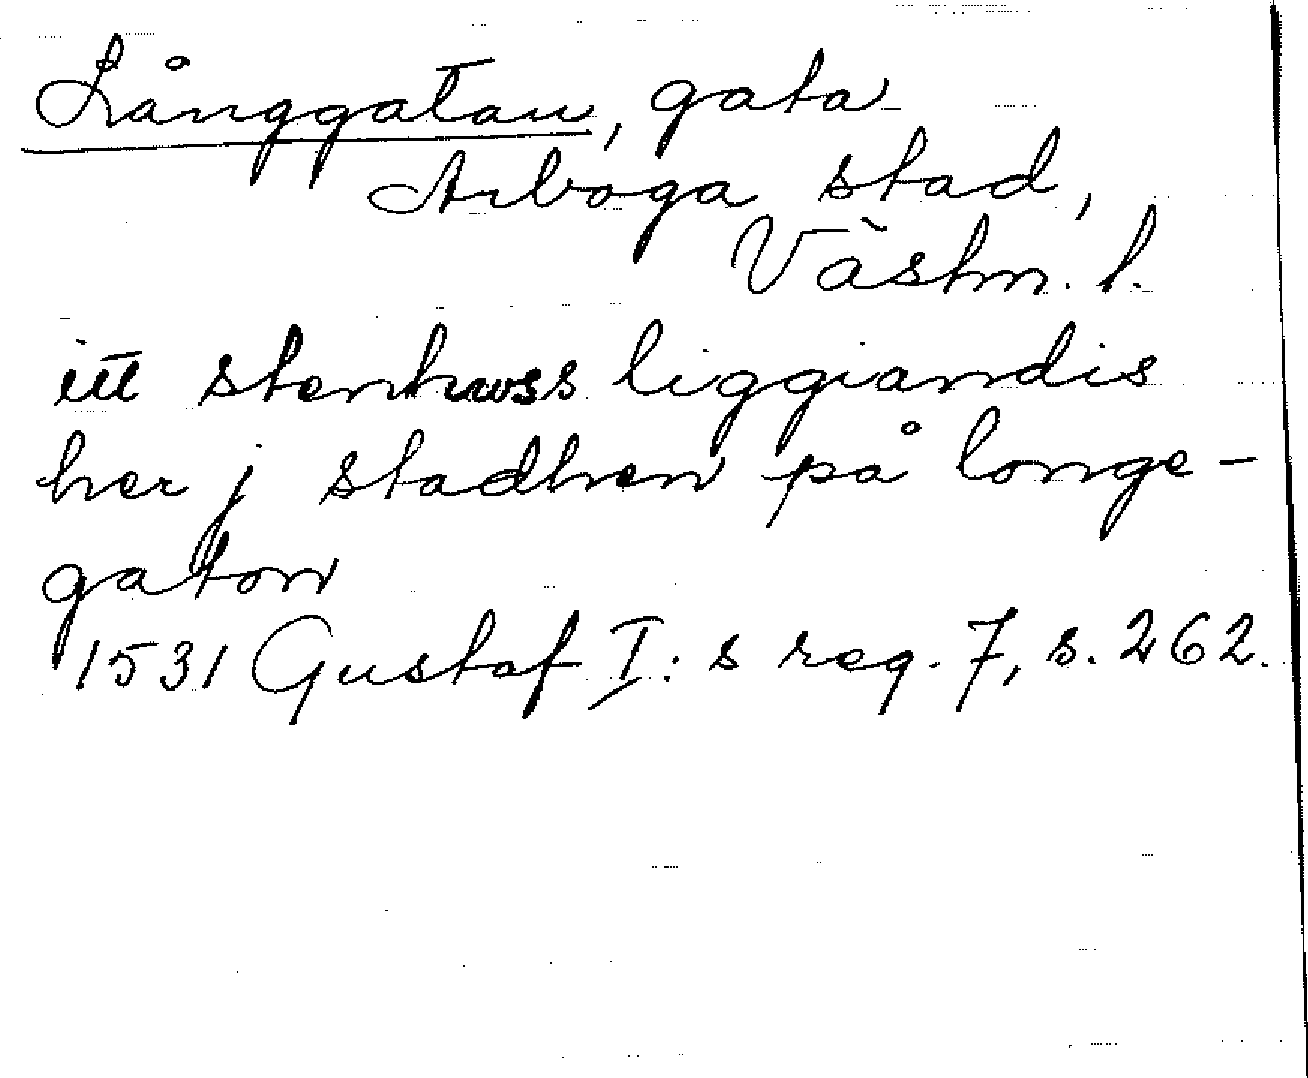 Långgatan, gata
Arboga stad,
Västm. l.
itt stenhwss liggiandis
her j stadhen på longe-
gaton
1531 Gustaf I:s reg. 7, s. 262.